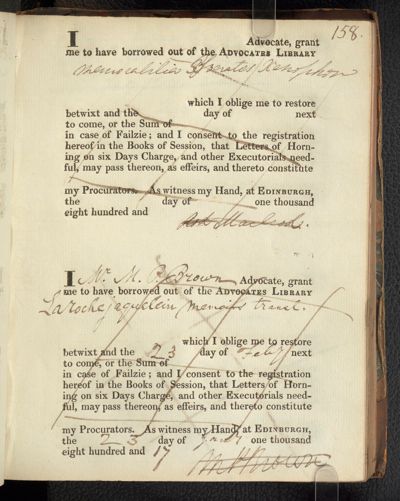 158.
I Advocate, grant
me to have borrowed out of the ADVOCATES LIBRARY
memorabilia Socrates Xenophon
which I oblige me to restore
betwixt and the day of next
to come, or the Sum of
in case of Failzie; and I consent to the registration
hereof in the Books of Session, that Letters of Horn-
ing on six Days Charge, and other Executorials need-
ful, may pass thereon, as effeirs, and thereto constitute
my Procurators. As witness my Hand, at EDINBURGH,
the day of one thousand
eight hundred and
Macleod.
I Mr. M. P. Brown Advocate, grant
me to have borrowed out of the ADVOCATES LIBRARY
La Rochejaquelein memoirs transl.
which I oblige me to restore
betwixt and the 23 day of Feby next
to come, or the Sum of
in case of Failzie; and I consent to the registration
hereof in the Books of Session, that Letters of Horn-
ing on six Days Charge, and other Executorials need-
ful, may pass thereon, as effeirs, and thereto constitute
my Procurators. As witness my Hand, at EDINBURGH,
the 23 day of Jany one thousand
eight hundred and 17
M P Brown